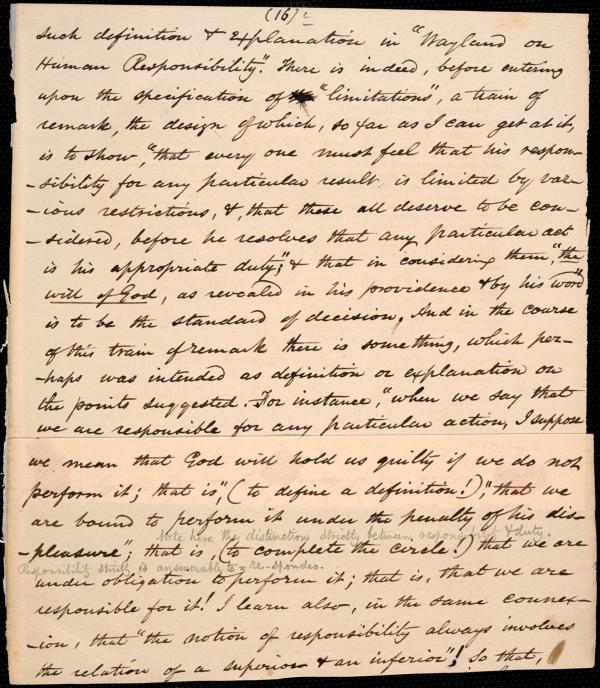 (16)
such definition & explanation in "Wayland on
Human Responsibility". There is indeed, before entering
upon the specification of "limitations", a train of
remark, the design of which, so far as I can get at it,
is to show, "that every one must feel that his respon-
-sibility for any particular result, is limited by var-
-ious restrictions, & that these all deserve to be con-
-sidered, before he resolves that any particular act
is his appropriate duty"; & that in considering them, "the
will of God, as revealed in his providence & by his word"
is to be the standard of decision. And in the course
of this train of remark there is something, which per-
-haps was intended as definition or explanation on
the points suggested. For instance, "when we say that
we are responsible for any particular action, I suppose
we mean that God will hold us guilty if we do not
perform it; that is", (to define a definition!), "that we
are bound to perform it under the penalty of his dis-
Note here the distinction strictly between responsibility & duty.
-pleasure"; that is, (to complete the circle!) that we are
Responsibility strictly is answerable to = re-spondeo.
under obligation to perform it; that is, that we are
responsible for it! I learn also, in the same connex-
-ion, that "the notion of responsibility always involves
the relation of a superior & an inferior"! So that,